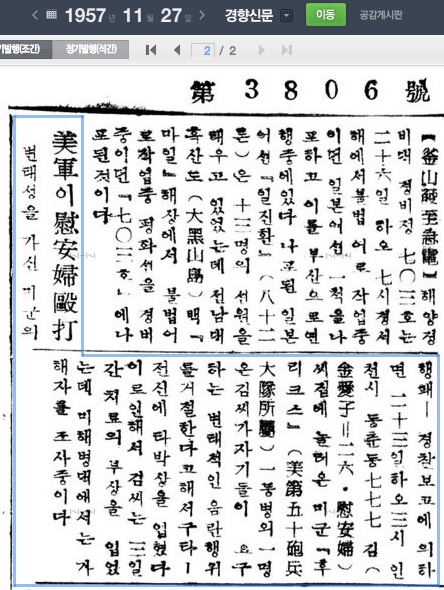 1957년 11월 27일 경향신문 이동 공감게시판
기발행(조간) 정기발행(석간) 2 / 2
第3806號
【釜山發至急電】해양경
비대 경비정 七○三호는
二十六일 하오 七시경서
해에서불법어로작업중
이던 일본어선 一척을나
포하고 이를 부산으로연
행중에있다 나포된 일본
어선『일진환』(八十二
톤)은 十三명의 선원을
태우고 있었는데 전남대
흑산도(大黑山島) 백『
마일』해상에서 불법어
로작업중 평화선을 경비
중이던『七○三호』에나
포된것이다
美軍이慰安婦毆打
변태성을 가진 미군의
행패— 경찰보고에 의하
면 二十三일하오三시 인
천시 동춘동七七七 김(
金愛子=二六·慰安婦)
씨집에 놀러온 미군『후
리크스』(美第五十砲兵
大隊所屬) 一등병외一명
은김씨가자기들이 요구
하는 변태적인 음란행위
를거절한다고해서구타—
전신에 타박상을 입혔다
이로인해서 김씨는 三일
간 치료의 부상을 입었
는데 미해병대에서는 가
해자를 조사중이다